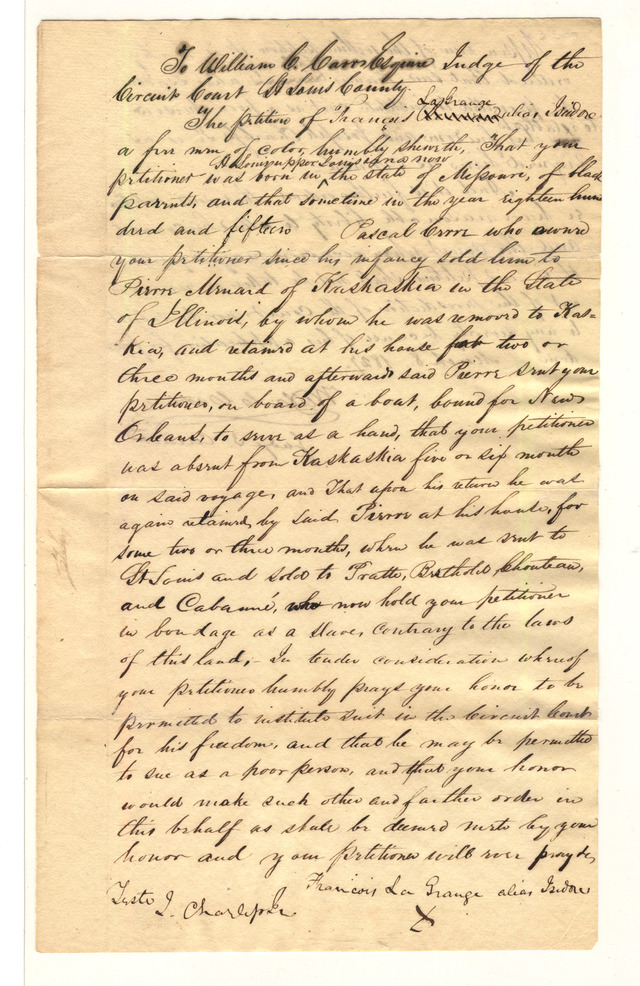 To William C. Carr Esquire Judge of the
Circuit Court St Louis County.
The petition of François La Grange alias Isidore
a free man of color, humbly sheweth, That your
petitioner was born in St Louis upper Louisiana now the state of Missouri, of black
parents, and that sometime in the year eighteen hun
dred and fifteen Pascal Cerre who owned
your petitioner since his infancy sold him to
Pierre Menard of Kaskaskia in the State
of Illinois, by whom he was removed to Kas=
kia, and retained at his house for two or
three months and afterwards said Pierre sent your
petitioner, on board of a boat, bound for New
Orleans, to serve as a hand, that your petitioner
was absent from Kaskaskia five or six month
on said voyage, and That upon his return he was
again retained, by said Pierre at his house, for
some two or three months, when he was sent to
St Louis and sold to Pratte, Berthold, Chouteau,
and Cabanné, who now hold your petitioner
in bondage as a slave, contrary to the laws
of this land; - In tender consideration whereof
your petitioner humbly prays your honor to be
permitted to institute suit in the Circuit Court
for his freedom, and that he may be permitted
to sue as a poor person, and that your honor
would make such other and farther order in
this behalf as shall be deemed mete by your
honor and your petitioner will ever pray &c,
Francois La Grange alias Isidore
Teste J. Charless Jr
X